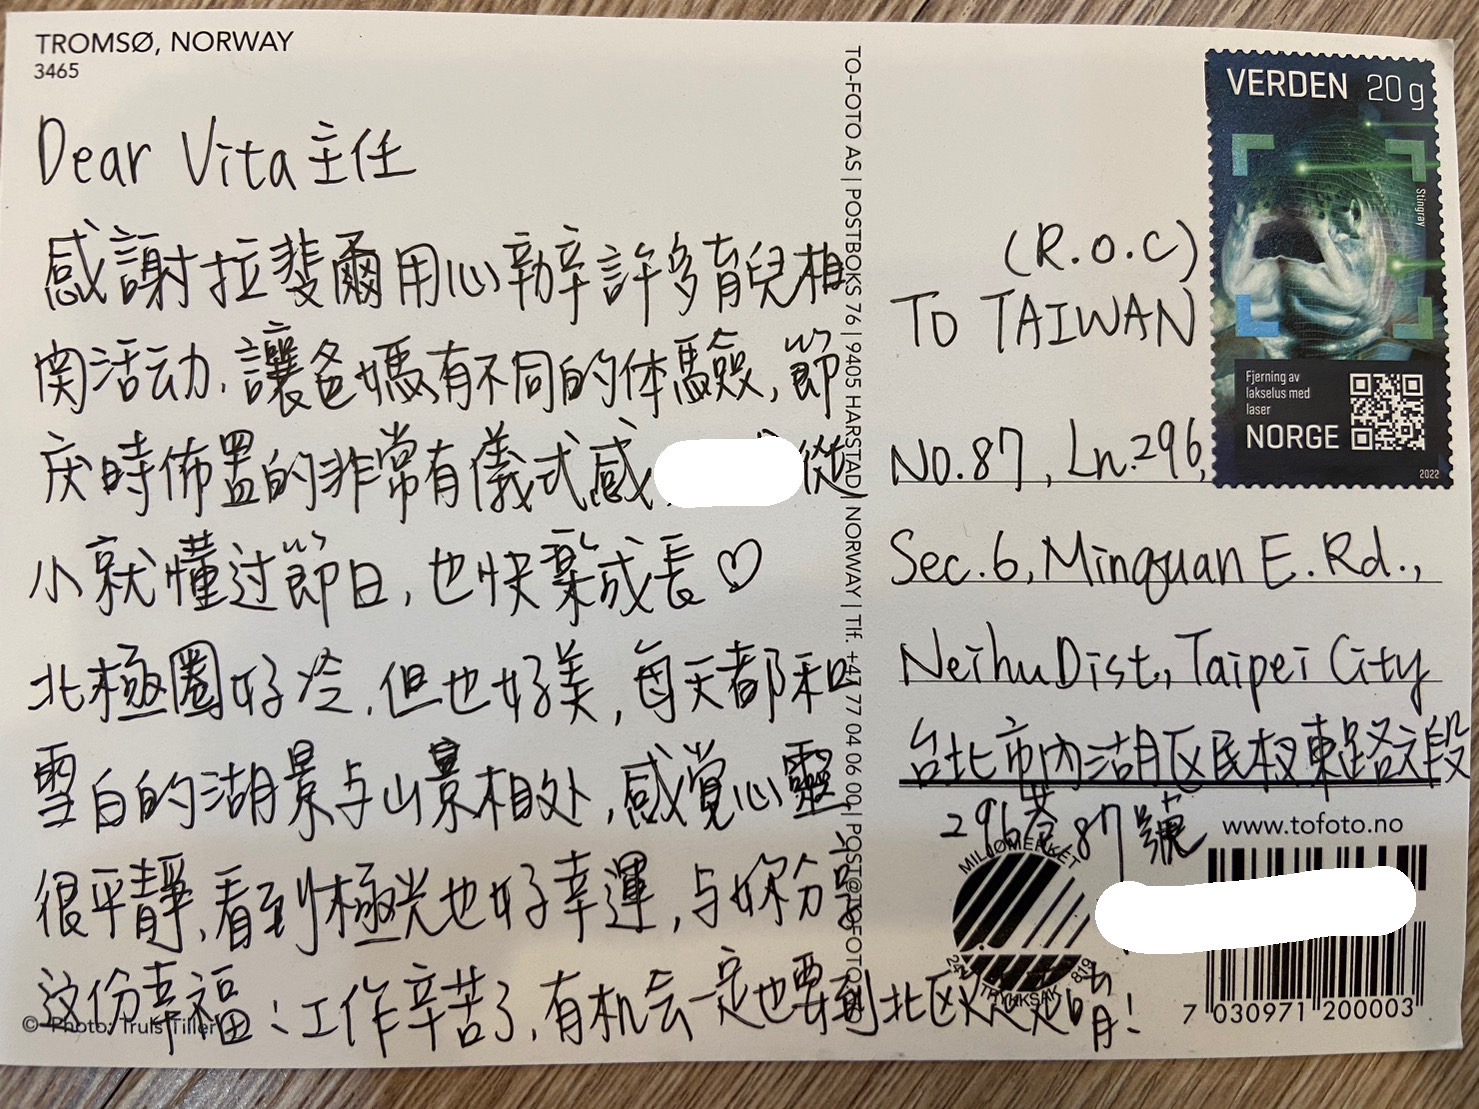 TROMSØ, NORWAY
3465
Dear Vita 主任
感謝拉斐爾用心辦許多育兒相
関活动,讓爸媽有不同的体驗,節
庆時佈置的非常有儀式感,
從
小就懂过節日,也快楽成長♡
北極圈好冷,但也好美,每天都和
雪白的湖景与山景相处,感覚心靈
很平靜,看到極光也好幸運,与妳分享
这份幸福:工作辛苦了,有机会一定也要到北欧走走唷!
© Photo: Truls Tiller
TO-FOTO AS | POSTBOKS 76 | 9405 HARSTAD | NORWAY | Tlf. +47 77 04 06 00 | POST@TOFOTO.NO
VERDEN 20 g
Stingray
Fjerning av
lakselus med
laser
NORGE
2022
(R.O.C)
TO TAIWAN
NO.87, Ln.296,
Sec.6, Minquan E. Rd.,
Neihu Dist., Taipei City
台北市內湖区民权東路六段
296巷87號
www.tofoto.no
MILJØMERKET
241 819
TRYKKSAK
7 030971 200003